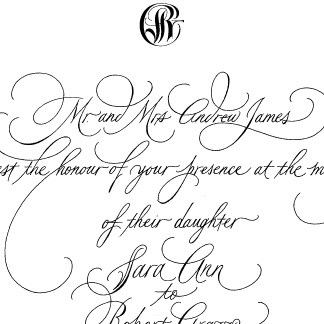 Mr. and Mrs Andrew James
the honour of your presence at the
of their daughter
Sara Ann
to
Robert